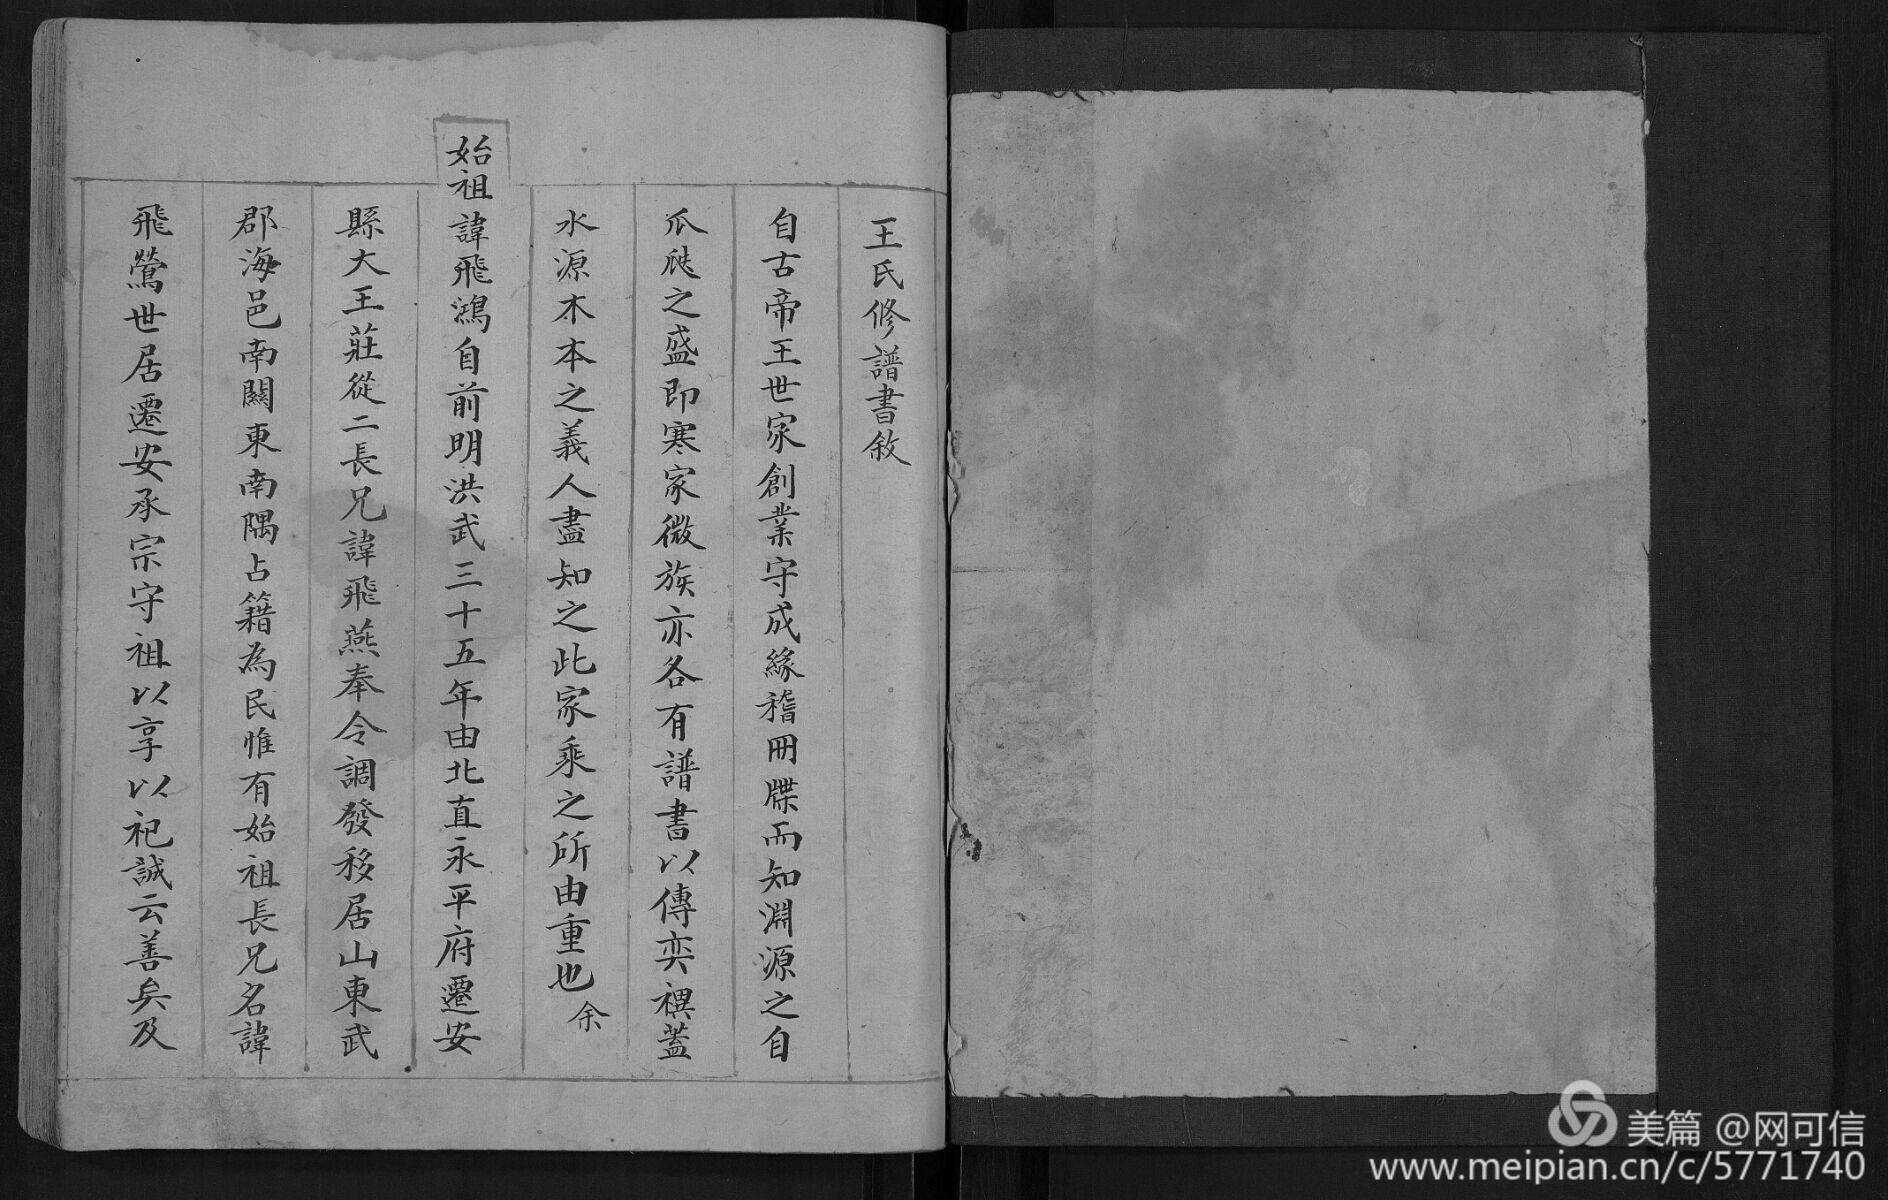 王氏修譜書敘
自古帝王世家創業守成緣稽冊牒而知淵源之自
瓜瓞之盛即寒家微族亦各有譜書以傳奕禩蓋
水源木本之義人盡知之此家乘之所由重也余
始祖諱飛鴻自前明洪武三十五年由北直永平府遷安
縣大王莊從二長兄諱飛燕奉令調發移居山東武
郡海邑南關東南隅占籍為民惟有始祖長兄名諱
飛鶯世居遷安承宗守祖以享以祀誠云善矣及
美篇 @网可信
www.meipian.cn/c/5771740